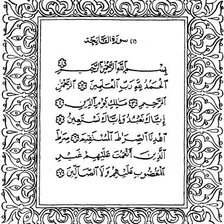 سورة الفاتحة
بسم الله الرحمن الرحيم
الحمد لله رب العلمين الرحمن
الرحيم ملك يوم الدين
إياك نعبد وإياك نستعين
اهدنا الصرط المستقيم صرط
الذين أنعمت عليهم غير
المغضوب عليهم ولا الضالين